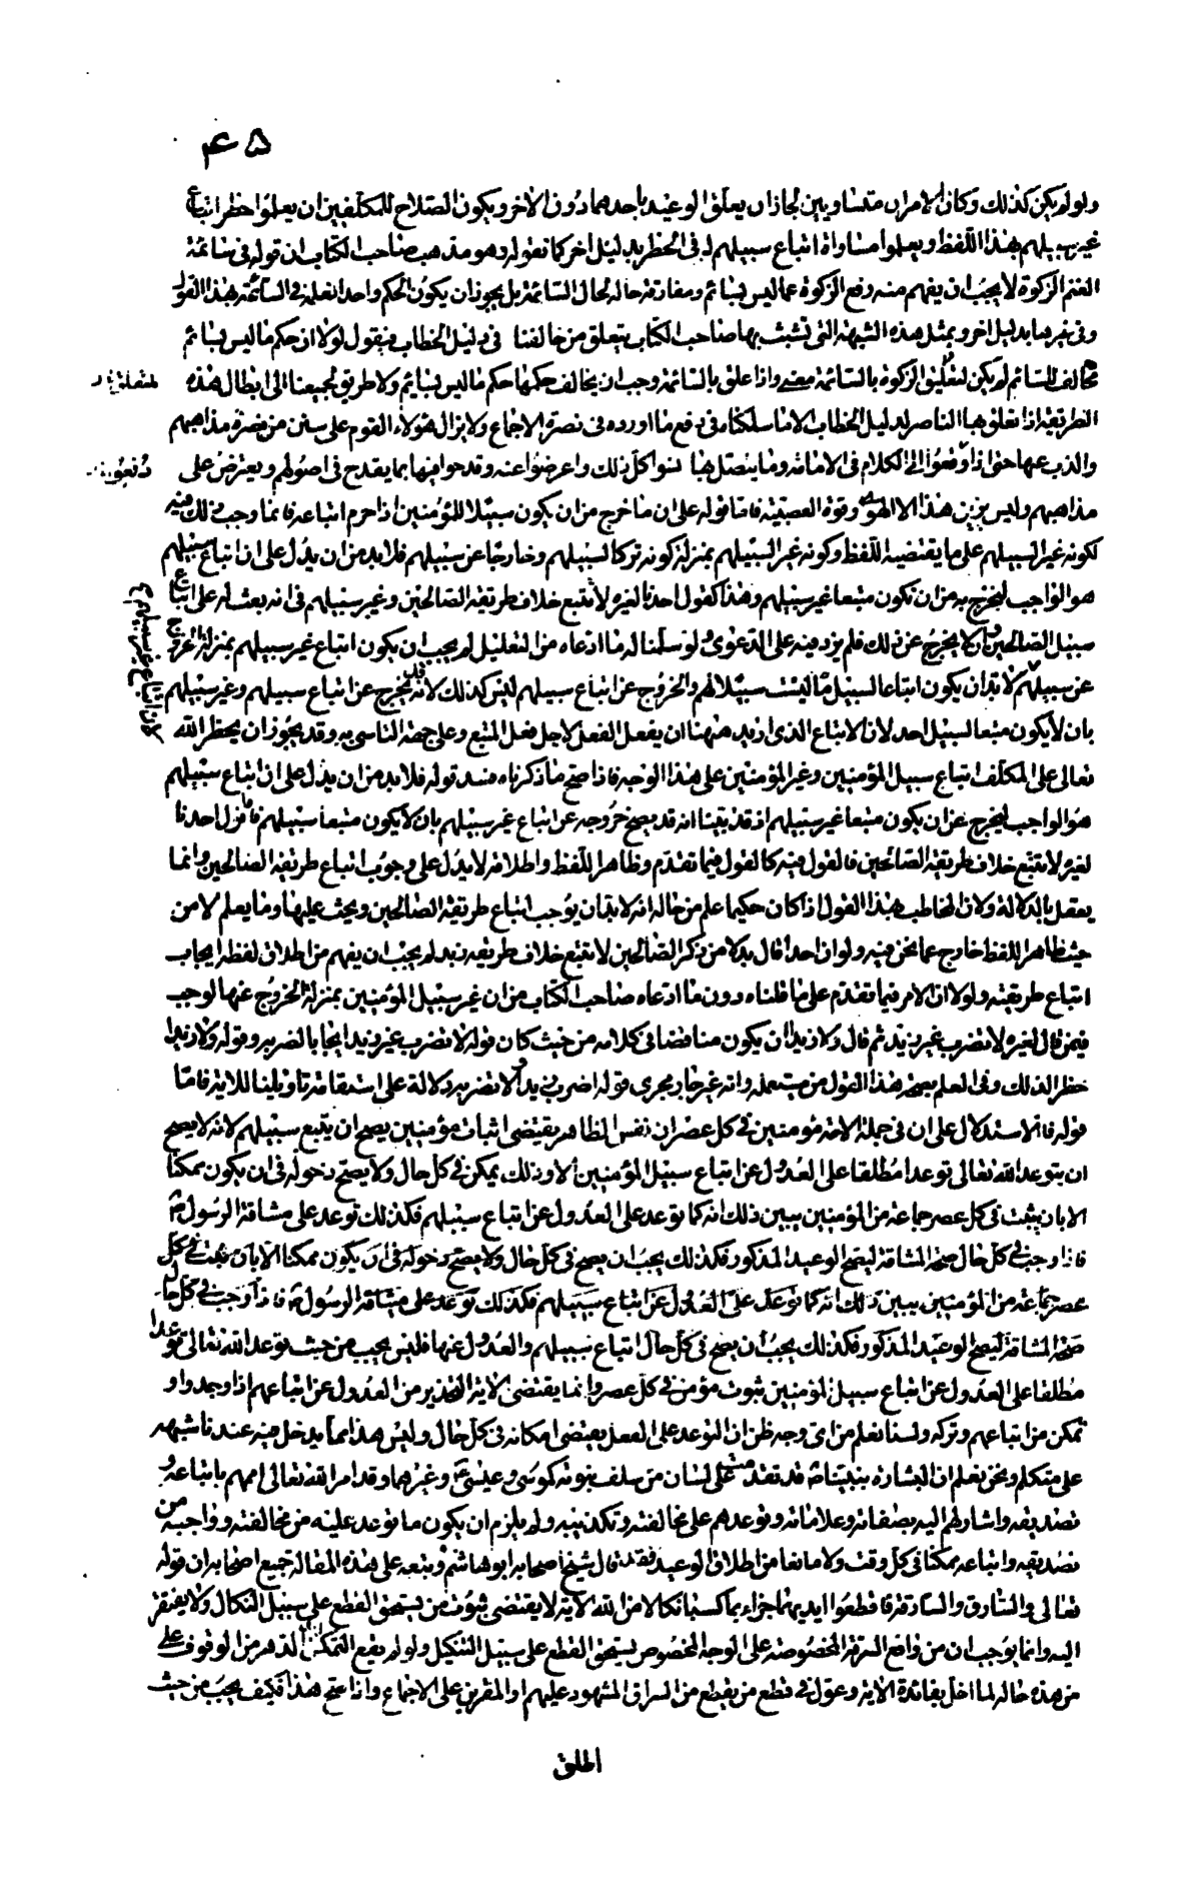 ٤٥
ولو لم يكن كذلك وكان الامران متساويين لجاز ان يعلق الوعيد باحدهما دون الاخر ويكون الصلاح للمكلفين ان يعلموا حظر اتباع
غير سبيلهم بهذا اللفظ ويعلموا مساواة اتباع سبيلهم له في الحظر بدليل اخر كما نقوله وهو مذهب صاحب الكتاب ان قوله في سائمة
الغنم الزكوة لا يجب ان يفهم منه رفع الزكوة عما ليس بسائم ومفارقة حاله لحال السائمة بل يجوز ان يكون الحكم واحدا فعله في السائمة بهذا القول
وفي غيرها بدليل اخر وبمثل هذه الشبهة التي تشبث بها صاحب الكتاب يتعلق من خالفنا في دليل الخطاب فيقول لولا ان حكم ما ليس بسائم
مخالف للسائم لم يكن لتعليق الزكوة بالسائمة معنى واذا علق بالسائمة وجب ان يخالف حكمها حكم ما ليس بسائم ولا طريق لجميعنا الى ابطال هذه
الطريقة اذا تعلق بها الناصر لدليل الخطاب الا ما سلكناه في دفع ما اورده في نصرة الاجماع ولا يزال هؤلاء القوم على سنن من نصرة مذاهبهم
والذب عنها حتى اذا وقعوا الى الكلام في الامامة وما يتصل بها نسوا كل ذلك واعرضوا عنه وقدحوا فيها بما يقدح في اصولهم ويعترض على
دفعوا
مذاهبهم وليس يزين هذا الا الهوى وقوة العصبية فاما قوله على ان ما خرج من ان يكون سبيلا للمؤمنين اذا حرم اتباعه فانما وجب ذلك فيه
لكونه غير السبيلهم على ما يقتضيه اللفظ وكونه غير السبيلهم بمنزلة كونه تركا لسبيلهم وخارجا عن سبيلهم فلا بد من ان يدل على ان اتباع سبيلهم
هو الواجب ليخرج به من ان تكون متبعا غير سبيلهم وهذا كقول احدنا لغيره لا تتبع خلاف طريقة الصالحين وغير سبيلهم في انه بعث له على اتباع
سبيل الصالحين وان لا يخرج عن ذلك فلم يزد فيه على الدعوى ولو سلمنا له ما ادعاه من التعليل لم يجب ان يكون اتباع غير سبيلهم بمنزلة الخروج
عن سبيلهم لا بد ان يكون اتباعا لسبيل ما ليست سبيلا لهم والخروج عن اتباع سبيلهم ليس كذلك لانه قد يخرج عن اتباع سبيلهم وغير سبيلهم
بان لا يكون متبعا لسبيل احد لان الاتباع الذي اريد ههنا ان يفعل الفعل لاجل فعل المتبع وعلى جهة التاسي به وقد يجوز ان يحظر الله
تعالى على المكلف اتباع سبيل المؤمنين وغير المؤمنين على هذا الوجه فاذا صح ما ذكرناه فسد قوله فلا بد من ان يدل على ان اتباع سبيلهم
هو الواجب ليخرج عن ان يكون متبعا غير سبيلهم اذ قد بينا انه قد يصح خروجه عن اتباع غير سبيلهم بان لا يكون متبعا سبيلهم فاما قول احدنا
لغيره لا تتبع خلاف طريقة الصالحين فالقول فيه كالقول فيما تقدم وظاهر اللفظ واطلاقه لا يدل على وجوب اتباع طريقة الصالحين وانما
يعقل بالدلالة ولان المخاطب بهذا القول اذا كان حكيما علم من حاله انه لا بد ان يوجب اتباع طريقة الصالحين ويحث عليها وما يعلم لا من
حيث ظاهر اللفظ خارج عما نحن فيه ولو ان احدا قال بدلا من ذكر الصالحين لا تتبع خلاف طريقة زيد لم يجب ان يفهم من اطلاق لفظه ايجاب
اتباع طريقته ولولا ان الامر فيما تقدم على ما قلناه دون ما ادعاه صاحب الكتاب من ان غير سبيل المؤمنين بمنزلة الخروج عنها لوجب
فيمن قال لغيره لا تضرب غير زيد ثم قال ولا زيدا ان يكون مناقضا في كلامه من حيث كان قوله لا تضرب غير زيد ايجابا لضربه وقوله ولا زيدا
حظر الذلك وفي العلم بصحة هذا القول من مستعمله وانه غير جار مجرى قوله اضرب زيدا ولا تضربه دلالة على استقامة تاويلنا للاية فاما
قوله فالاستدلال على ان في جملة الامة مؤمنين في كل عصر ان نفس الظاهر يقتضي اثبات مؤمنين يصح ان يتبع سبيلهم لانه لا يصح
ان يتوعد الله تعالى توعدا مطلقا على العدول عن اتباع سبيل المؤمنين الا وذلك يمكن في كل حال ولا يصح دخوله في ان يكون ممكنا
الا بان يثبت في كل عصر جماعة من المؤمنين يبين ذلك انه كما توعد على العدول عن اتباع سبيلهم فكذلك توعد على مشاقة الرسول
فاذا وجب في كل حال صحة المشاقة ليصح الوعيد المذكور فكذلك يجب ان يصح في كل حال ولا يصح دخوله في ان يكون ممكنا الا بان يثبت في كل
عصر جماعة من المؤمنين يبين ذلك انه كما توعد على العدول عن اتباع سبيلهم فكذلك توعد على مشاقة الرسول فاذا وجب في كل حال
صحة المشاقة ليصح الوعيد المذكور فكذلك يجب ان يصح في كل حال اتباع سبيلهم والعدول عنها فليس يجب من حيث توعد الله تعالى توعدا
مطلقا على العدول عن اتباع سبيل المؤمنين ثبوت مؤمن في كل عصر وانما يقتضي الاية التحذير من العدول عن اتباعهم اذا وجدوا و
تمكن من اتباعهم وتركه ولسنا نعلم من اي وجه ظن ان التوعد على الفعل يقتضي امكانه في كل حال وليس هذا مما يدخل فيه عندنا شبهة
على متكلم ونحن نعلم ان البشارة بنبينا قد تقدمت على لسان من سلف بنبوته كموسى وعيسى وغيرهما وقد امر الله تعالى اممهم باتباعه و
تصديقه واشار لهم اليه بصفاته وعلاماته وتوعدهم على مخالفته وتكذيبه ولم يلزم ان يكون ما توعد عليه من مخالفته وواجبه من
تصديقه واتباعه ممكنا في كل وقت ولا مانعا من اطلاق الوعيد فقد قال شيخ اصحابه ابو هاشم وتبعه على هذه المقالة جميع اصحابه ان قوله
تعالى والسارق والسارقة فاقطعوا ايديهما جزاء بما كسبا نكالا من الله الاية لا يقتضي ثبوت من يستحق القطع على سبيل النكال ولا يفتقر
اليه وانما يوجب ان من واقع السرقة المخصوصة على الوجه المخصوص يستحق القطع على سبيل التنكيل ولو لم يقع التمكن الدهر من الوقوف على
من هذه حاله لما اخل بفائدة الاية وعول في قطع من يقطع من السراق المشهود عليهم او المقرين على الاجماع واذا صح هذا فكيف يجب من حيث
اطلق